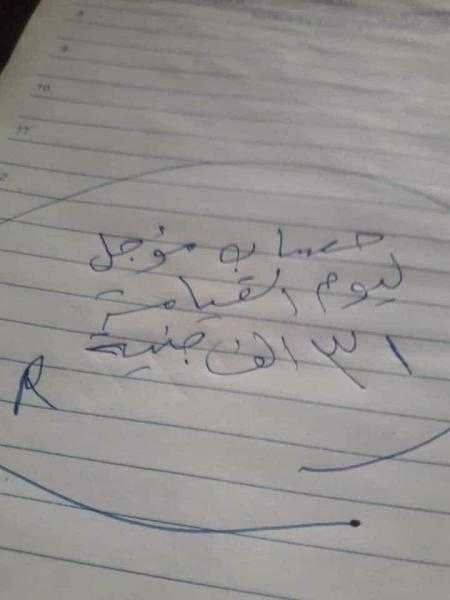 9
10
11
2
حساب مؤجل
ليوم القيامة
٣١ الف جنية
R